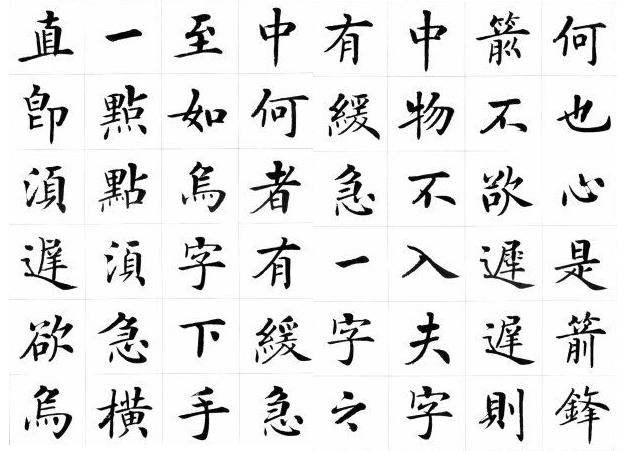 何也心是箭鋒
箭不欲遲遲則
中物不入夫字
有緩急一字之
中何者有緩急
至如烏字下手
一點點須急橫
直即須遲欲烏